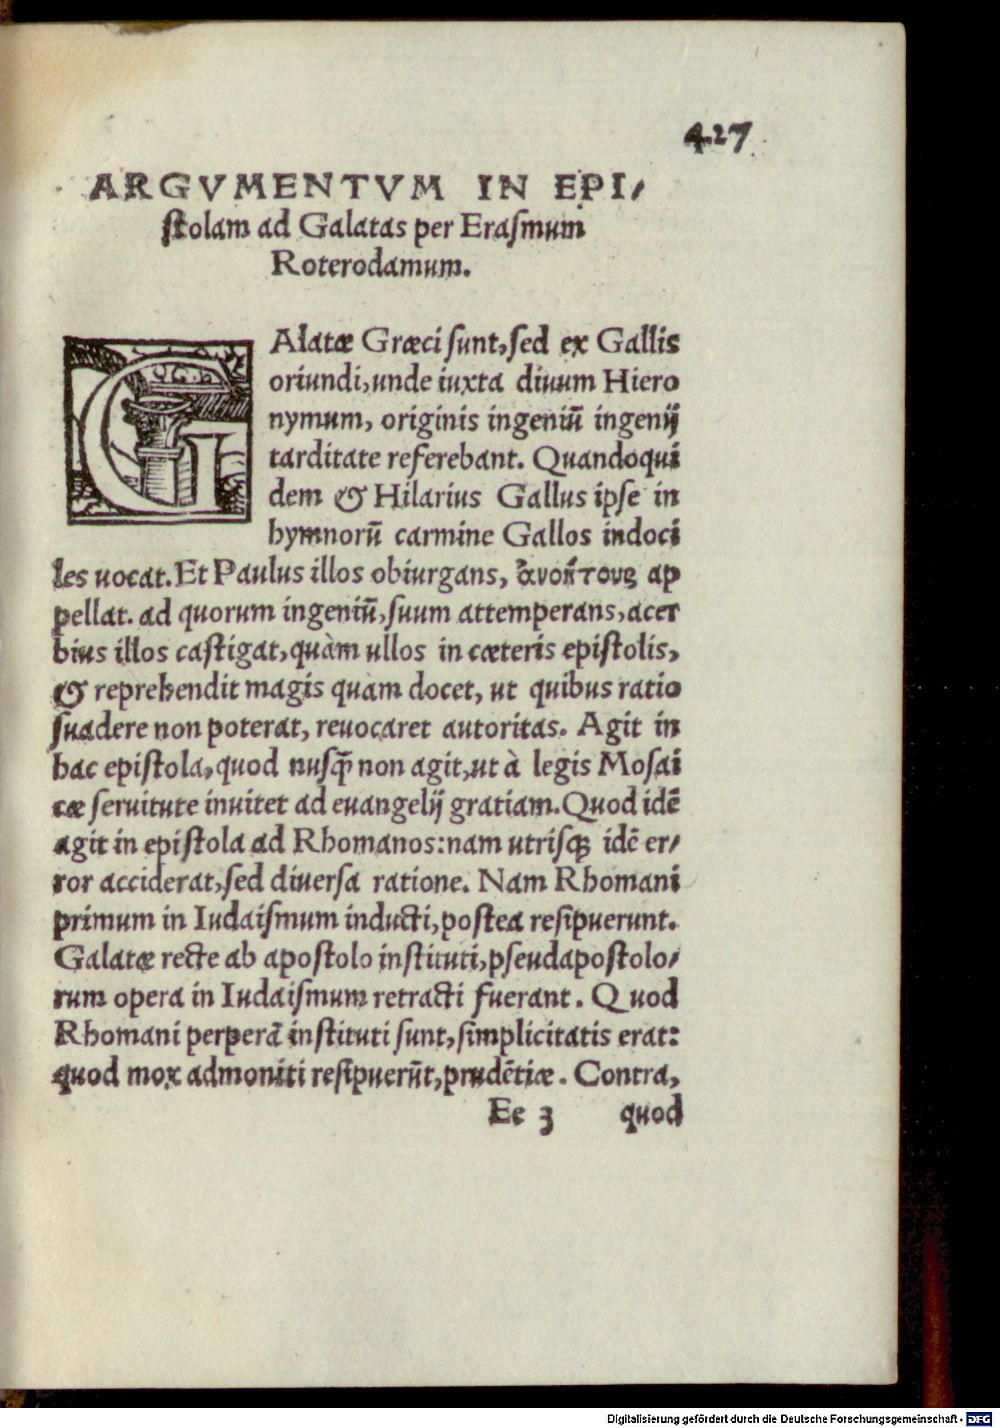 427
ARGVMENTVM IN EPI/
ſtolam ad Galatas per Eraſmum
Roterodamum.
GAlatæ Græci ſunt, ſed ex Gallis
oriundi, unde iuxta diuum Hiero
nymum, originis ingeniū ingenij
tarditate referebant. Quandoqui
dem & Hilarius Gallus ipſe in
hymnorū carmine Gallos indoci
les uocat. Et Paulus illos obiurgans, ἀνοήτους ap
pellat. ad quorum ingeniū, ſuum attemperans, acer
bius illos caſtigat, quàm ullos in cæteris epiſtolis,
& reprehendit magis quàm docet, ut quibus ratio
ſuadere non poterat, reuocaret autoritas. Agit in
hac epiſtola, quod nuſꝗ̃ non agit, ut à legis Moſai
cæ ſeruitute inuitet ad euangelij gratiam. Quod idē
agit in epiſtola ad Rhomanos: nam utriſqꝫ idē er/
ror acciderat, ſed diuerſa ratione. Nam Rhomani
primum in Iudaiſmum inducti, poſtea reſipuerunt.
Galatæ recte ab apoſtolo inſtituti, pſeudapoſtolo/
rum opera in Iudaiſmum retracti fuerant. Quod
Rhomani perperā inſtituti ſunt, ſimplicitatis erat:
quod mox admoniti reſipuerūt, prudētiæ. Contra,
Ee 3 quod
Digitalisierung gefördert durch die Deutsche Forschungsgemeinschaft - DFG